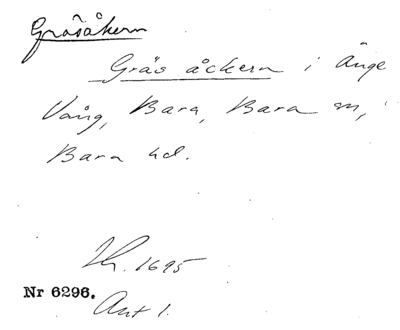 Gräsåkern
Gräs åckern i Änge
Vång, Bara, Bara sn,
Bara hd.
Lh. 1695
Nr 6296.
Ant 1.